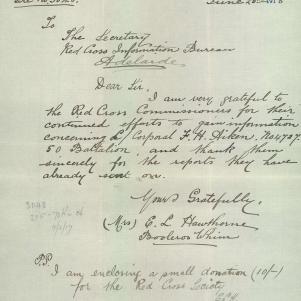 June 20th 1918
To
The Secretary
Red Cross Information Bureau
Adelaide
Dear Sir,
I am very grateful to
the Red Cross Commissioners for their
continued efforts to gain information
concerning L/Corporal F. H. Aiken, No 4727.
50 Battalion, and thank them
sincerely for the reports they have
already sent on.
Yours Gratefully,
(Mrs) E. L. Hawthorne
Booleroo Whim
P.P.
I am enclosing a small donation (10/-)
for the Red Cross Society